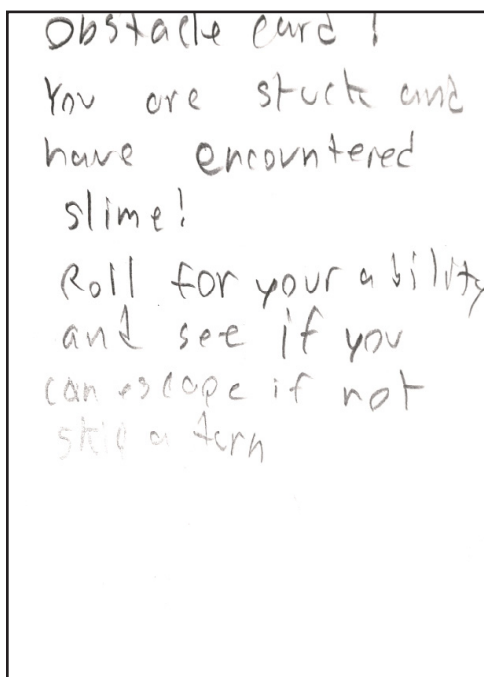 Obstacle card !
You are stuck and
have encountered
slime!
Roll for your ability
and see if you
can escape if not
skip a tern